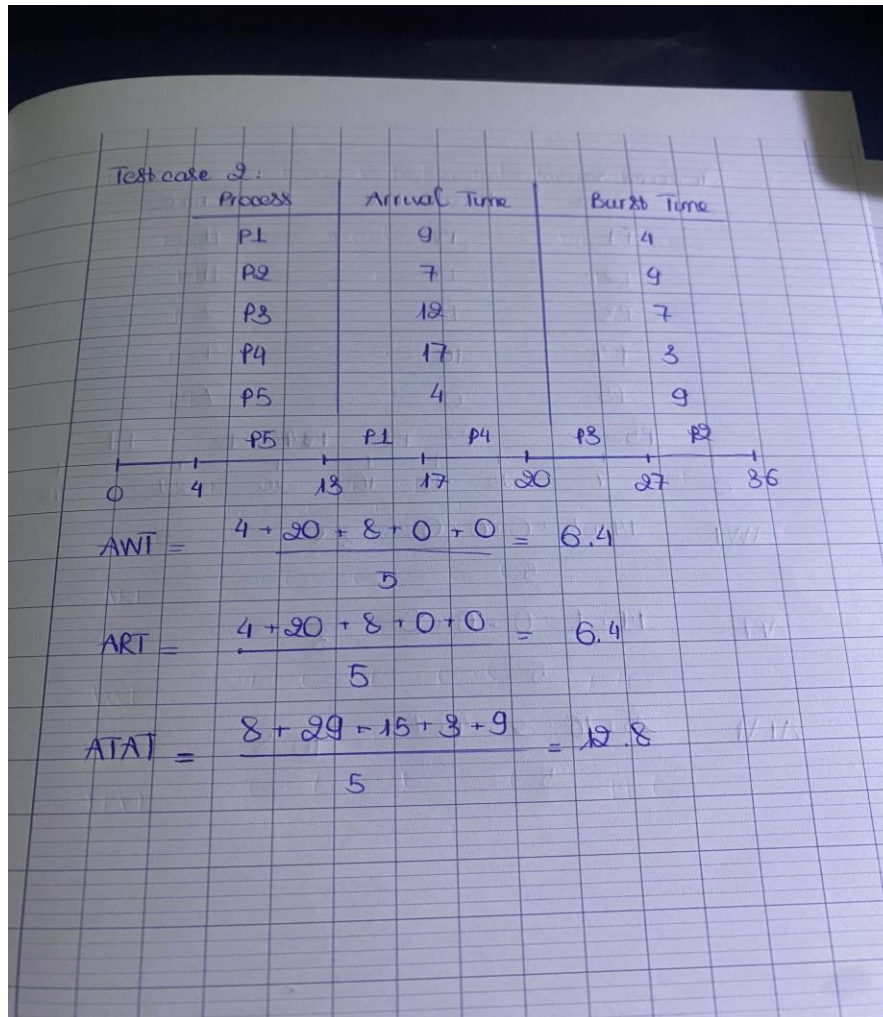 Test case 2:
Process Arrival Time Burst Time
P1 9 4
P2 7 9
P3 12 7
P4 17 3
P5 4 9
P5 P1 P4 P3 P2
0 4 13 17 20 27 36
AWT = 4 + 20 + 8 + 0 + 0 / 5 = 6.4
ART = 4 + 20 + 8 + 0 + 0 / 5 = 6.4
ATAT = 8 + 29 + 15 + 3 + 9 / 5 = 12.8